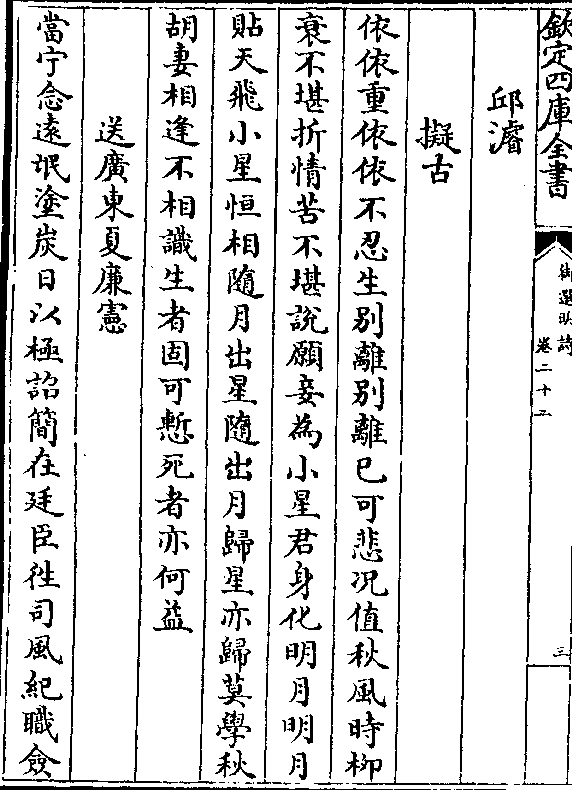 欽定四庫全書
御選明詩
卷二十二
三
邱濬
擬古
依依重依依不忍生别離别離已可悲况值秋風時柳
衰不堪折情苦不堪說願妾為小星君身化明月明月
貼天飛小星恒相隨月出星隨出月歸星亦歸莫學秋
胡妻相逢不相識生者固可慙死者亦何益
送廣東夏廉憲
當宁念遠氓塗炭日以極詔簡在廷臣徃司風紀職僉